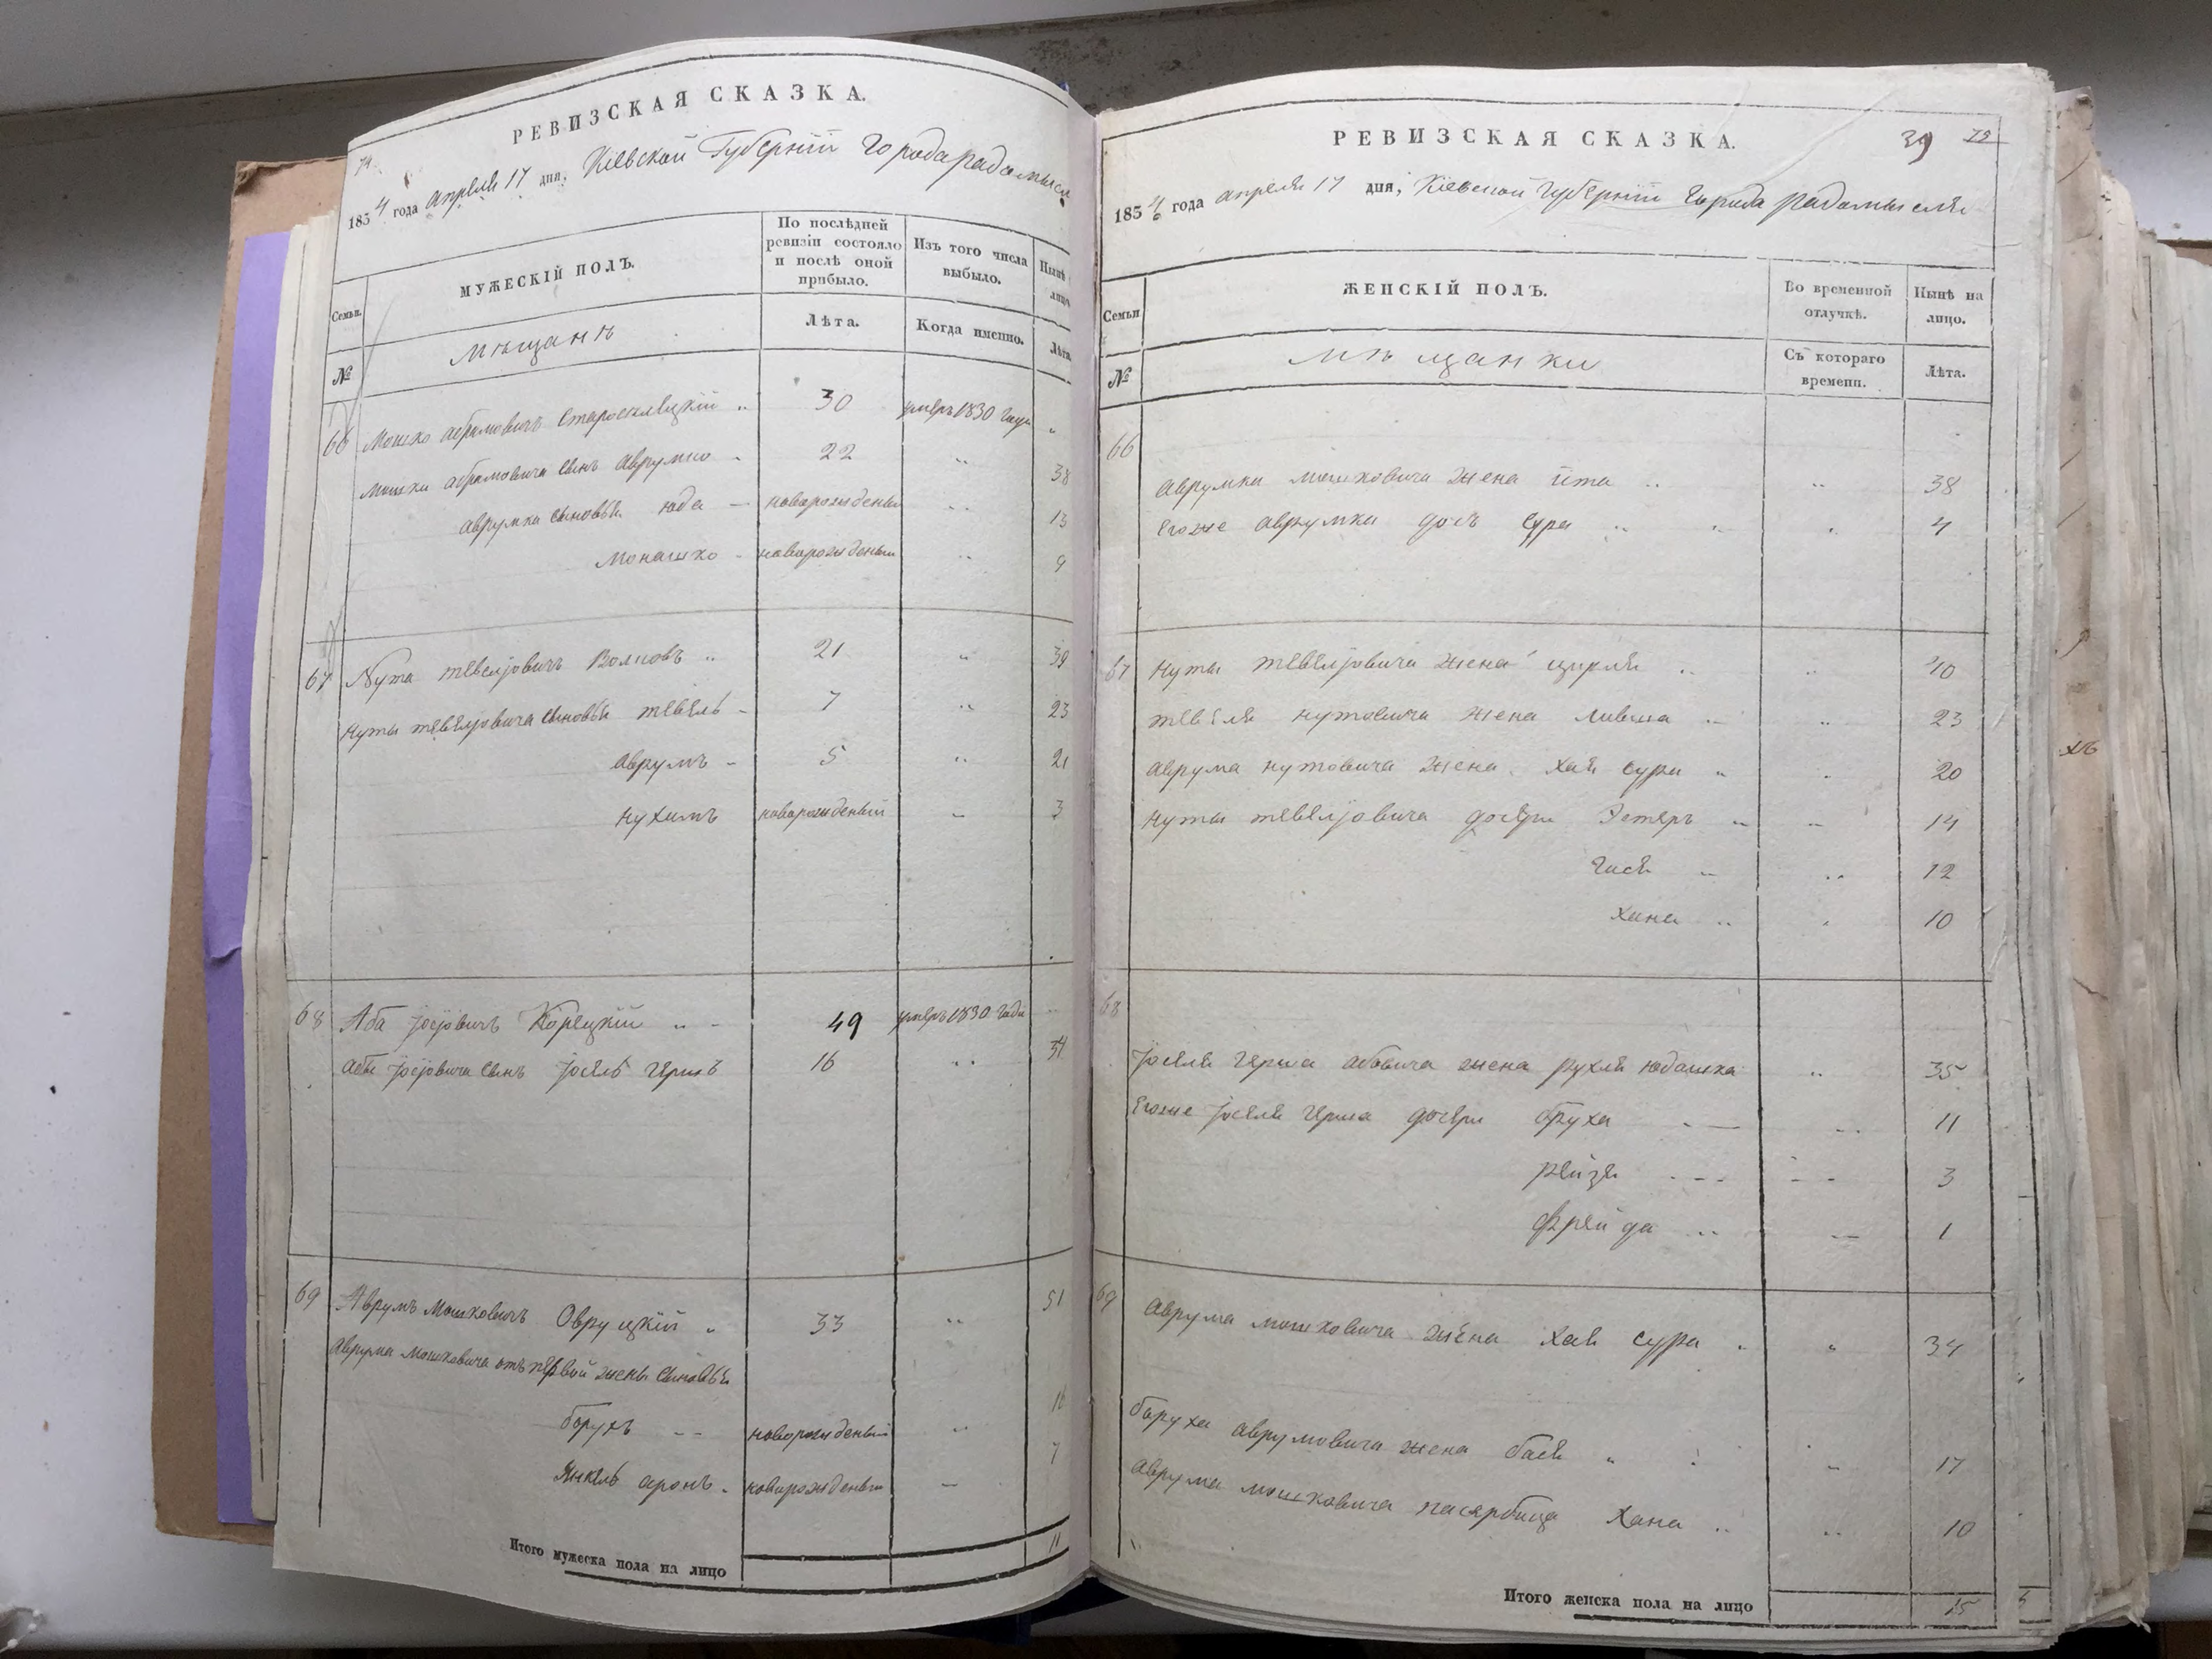 РЕВИЗСКАЯ СКАЗКА.
1854 года апреля 17 дня, Кіевской Губерніи Города радомысля
Семьи. МУЖЕСКІЙ ПОЛЪ. По послѣдней ревизіи состояло и послѣ оной прибыло. Изъ того числа выбыло. Нынѣ лицо
№ Мѣщанъ Лѣта. Когда именно. Лѣта
66 Мошко абрамовичъ Старосклецкій 30 умеръ 1830 Года
Мошки абрамовича Сынъ Аврумко 22 38
аврумка Сыновья юда новорожденый 13
Монашко новорожденый 9
67 Нута тевелјовичъ Волковъ 21 39
Нуты тевелјовича Сыновья тевель 7 23
аврумъ 5 21
Нухимъ новорожденый 3
68 Аба Јосјовичъ Корецкій 49 умеръ 1830 Года
абы Јосјовича Сынъ Јосель Гершъ 16 34
69 Аврумъ Мошковичъ Овруцкій 33 51
Аврума Мошковича отъ первой жены Сыновья
борухъ новорожденый
Янкель аронъ новорожденый 7
Итого мужеска пола на лицо 11
РЕВИЗСКАЯ СКАЗКА. 39
1854 года апреля 17 дня, Кіевской Губерніи Города радомысля
Семьи ЖЕНСКІЙ ПОЛЪ. Во временной отлучкѣ. Нынѣ на лицо.
№ Мѣщанки Съ котораго времени. Лѣта.
66
аврумки мошковича жена ита 38
Егоже аврумки дочь Сура 4
67 Нуты тевелјовича жена ципля 40
тевеля нутовича жена Ливша 23
аврума нутовича жена хая сура 20
Нуты тевелјовича дочери Эстеръ 14
Гися 12
Хана 10
68
Јоселя Герша абовича жена рухля юдашка 35
Егоже Јоселя Герша дочери бруха 11
рейзя 3
фрейда 1
69 Аврума мошковича жена хая сура 34
боруха аврумовича жена бася 17
аврума мошковича пасербица Хана 10
Итого женска пола на лицо 15